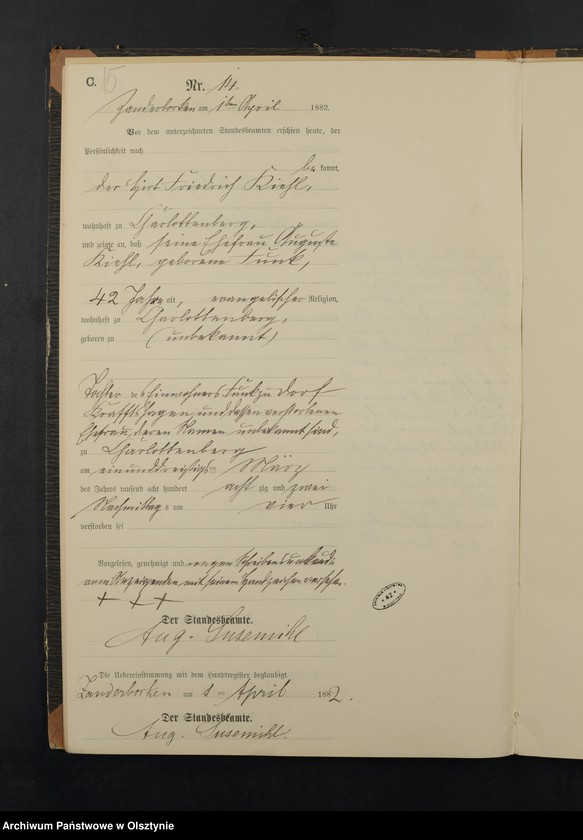 C. 15
Nr. 14.
Zanderborken am 1ten April 1882.
Vor dem unterzeichneten Standesbeamten erschien heute, der
Persönlichkeit nach
be kannt,
der Hirt Friedrich Kiehl,
wohnhaft zu Charlottenberg,
und zeigte an, daß seine Ehefrau Auguste
Kiehl, geborene Funk,
42 Jahre alt, evangelischer Religion,
wohnhaft zu Charlottenberg,
geboren zu (unbekannt)
Tochter des Einwohners Funk zu Dorf
Kraftshagen, und dessen verstorbenen
Ehefrau, deren Namen unbekannt sind,
zu Charlottenberg
am einunddreißigsten März
des Jahres tausend acht hundert acht zig und zwei
Nachmittags um vier Uhr
verstorben sei
Vorgelesen, genehmigt und wegen Schreibensunkunde
vom Anzeigenden mit seinem Handzeichen versehen.
+ + +
Der Standesbeamte.
Aug. Susemihl
Die Uebereinstimmung mit dem Hauptregister beglaubigt.
Zanderborken am 1 ten April 1882.
Der Standesbeamte.
Aug. Susemihl.
42
Archiwum Państwowe w Olsztynie